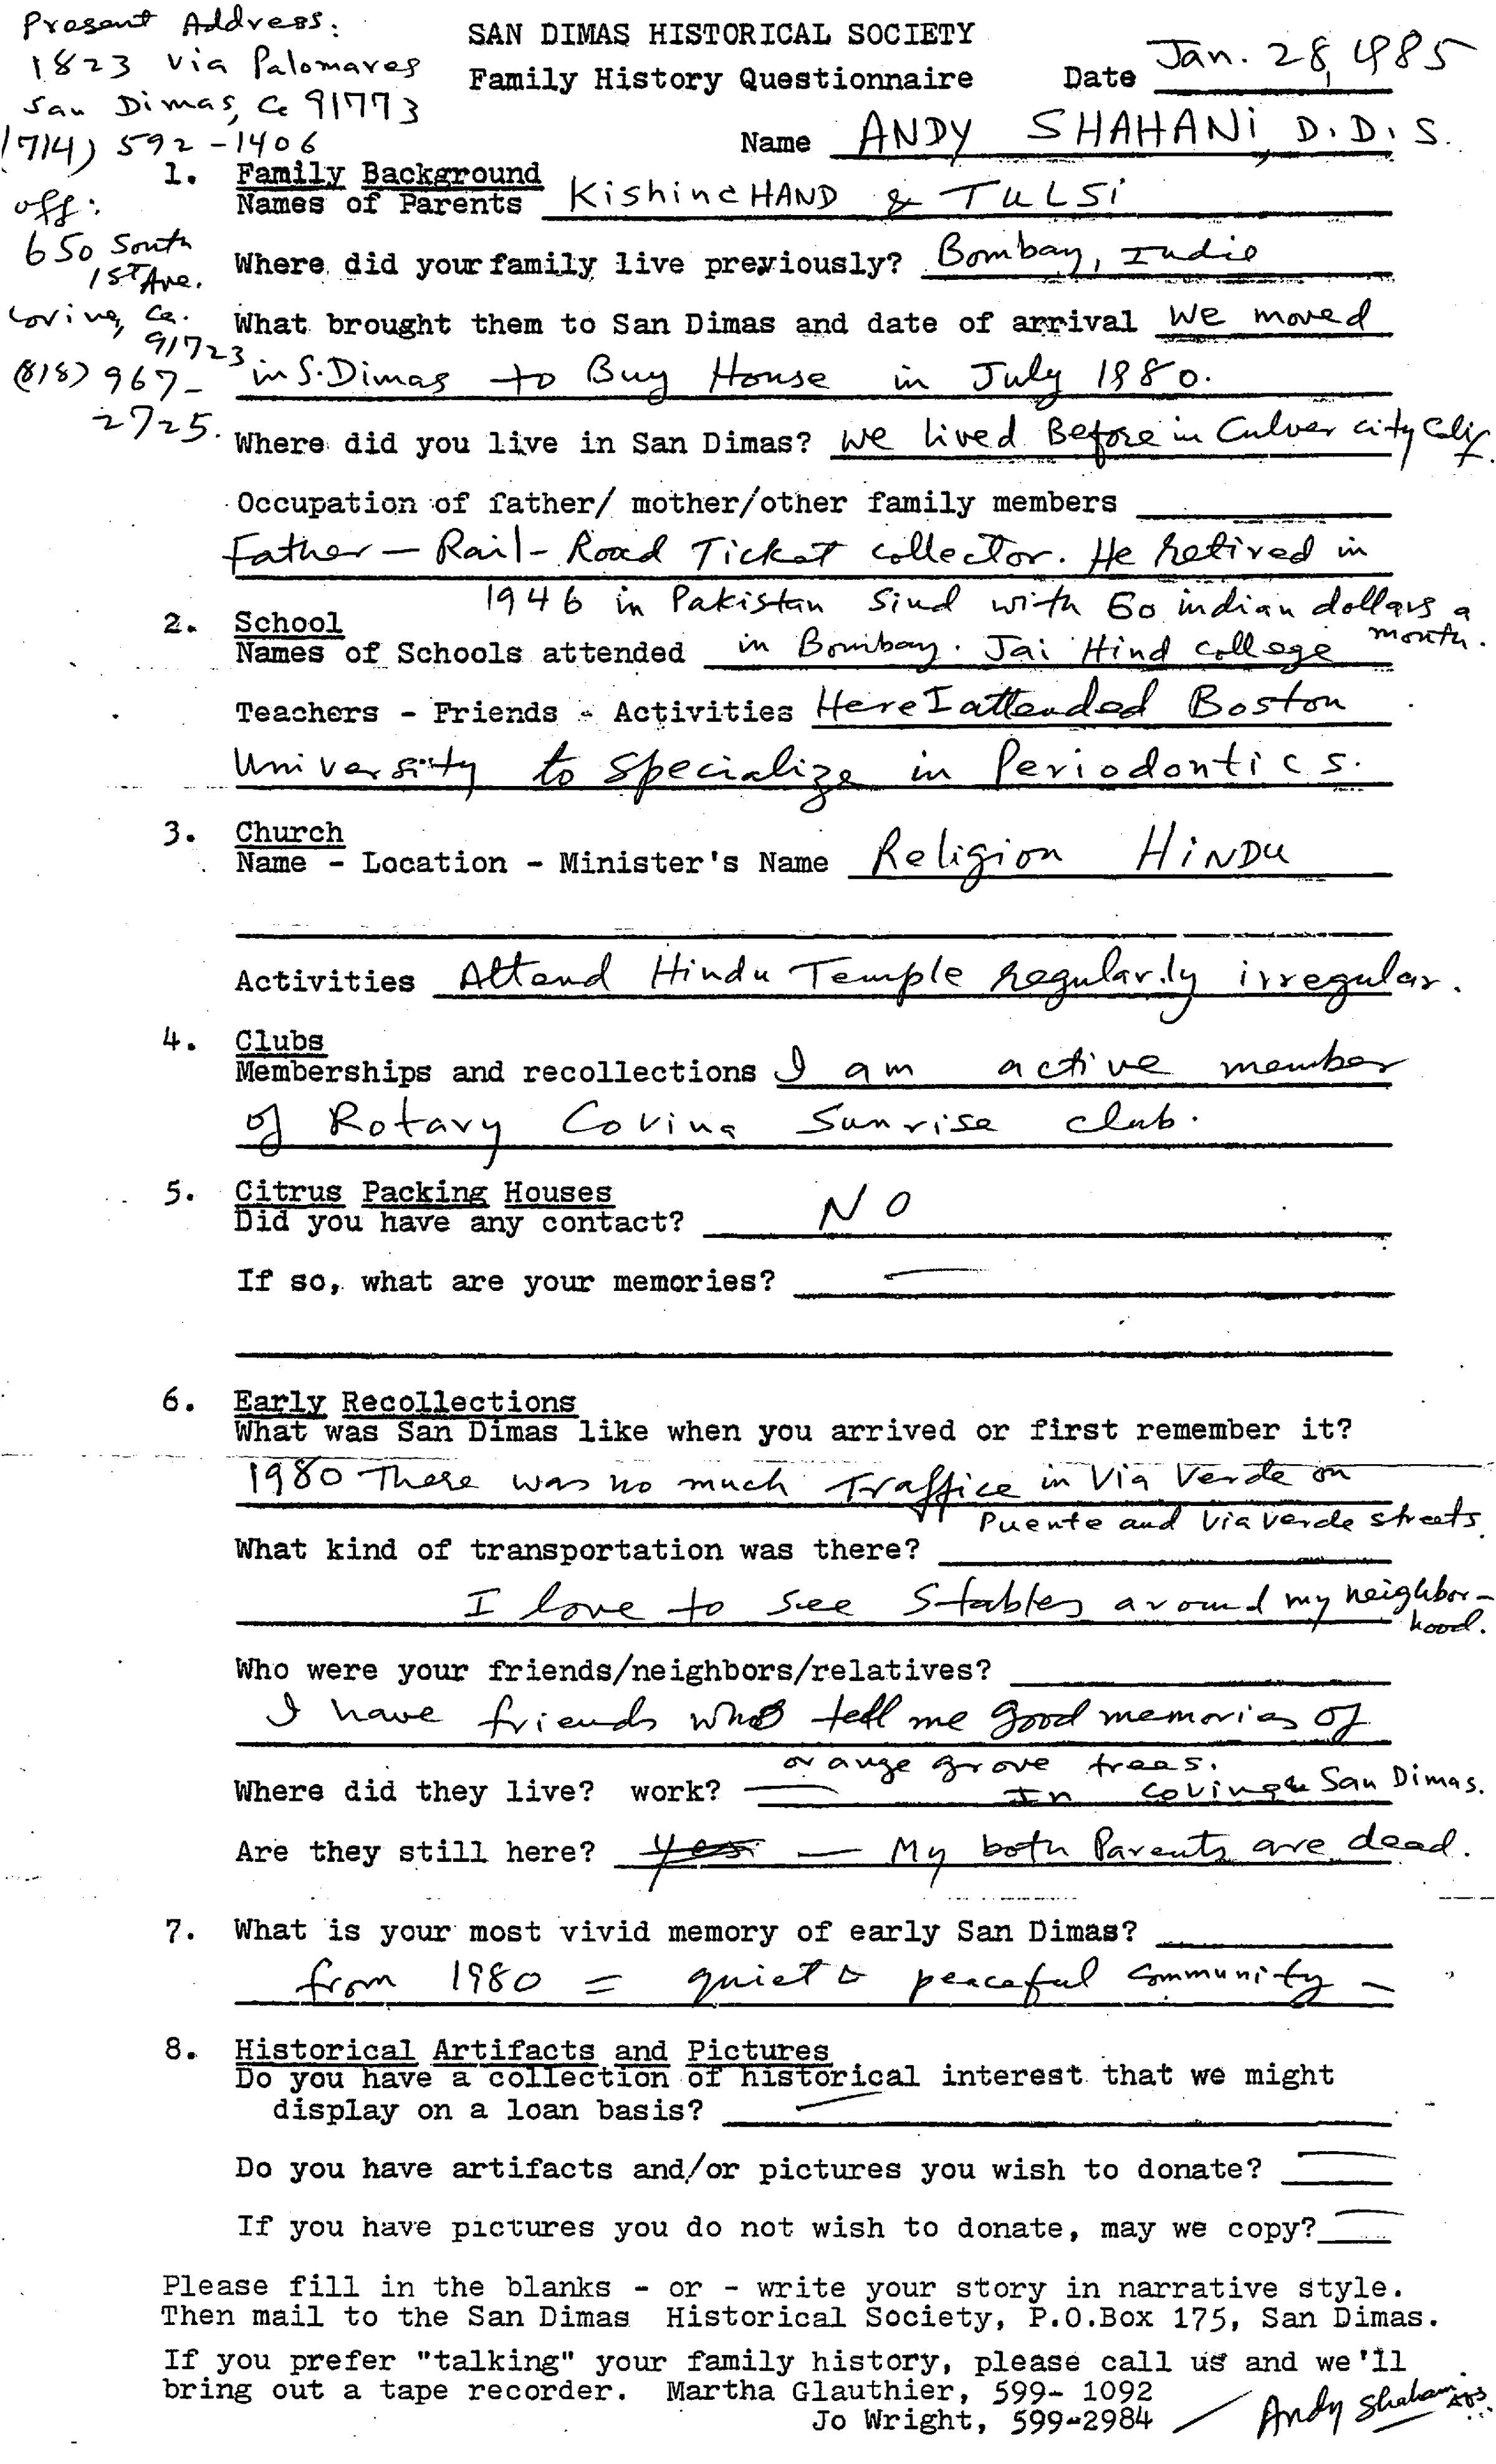 Present Address:
1823 Via Palomares
San Dimas, Ca 91773
(714) 592-1406
off:
650 South
1ST Ave.
Covina, Ca.
91723
(818) 967-
2725.
SAN DIMAS HISTORICAL SOCIETY
Family History Questionnaire
Date Jan. 28, 1985
Name ANDY SHAHANI, D.D.S.
1. Family Background
Names of Parents KishincHAND & TULSI
Where did your family live previously? Bombay, India
What brought them to San Dimas and date of arrival We moved
in S. Dimas to Buy House in July 1980.
Where did you live in San Dimas? We lived Before in Culver city Calif.
Occupation of father/ mother/other family members
Father — Rail-Road Ticket collector. He retired in
1946 in Pakistan Sind with 60 indian dollars a
month.
2. School
Names of Schools attended in Bombay. Jai Hind college
Teachers - Friends - Activities Here I attended Boston
University to specialize in Periodontics.
3. Church
Name - Location - Minister's Name Religion HINDU
Activities Attend Hindu Temple regularly irregular.
4. Clubs
Memberships and recollections I am active member
of Rotary Covina Sunrise club.
5. Citrus Packing Houses
Did you have any contact? NO
If so, what are your memories? —
6. Early Recollections
What was San Dimas like when you arrived or first remember it?
1980 There was no much Traffice in Via Verde on
Puente and Via Verde streets.
What kind of transportation was there?
I love to see Stables around my neighbor-
hood.
Who were your friends/neighbors/relatives?
I have friends who tell me good memories of
orange grove trees.
Where did they live? work? — In Covina & San Dimas.
Are they still here? Yes — My both Parents are dead.
7. What is your most vivid memory of early San Dimas?
from 1980 = quiet & peaceful community —
8. Historical Artifacts and Pictures
Do you have a collection of historical interest that we might
display on a loan basis? —
Do you have artifacts and/or pictures you wish to donate? —
If you have pictures you do not wish to donate, may we copy? —
Please fill in the blanks - or - write your story in narrative style.
Then mail to the San Dimas Historical Society, P.O.Box 175, San Dimas.
If you prefer "talking" your family history, please call us and we'll
bring out a tape recorder. Martha Glauthier, 599- 1092
Jo Wright, 599-2984 / Andy Shahani DDS